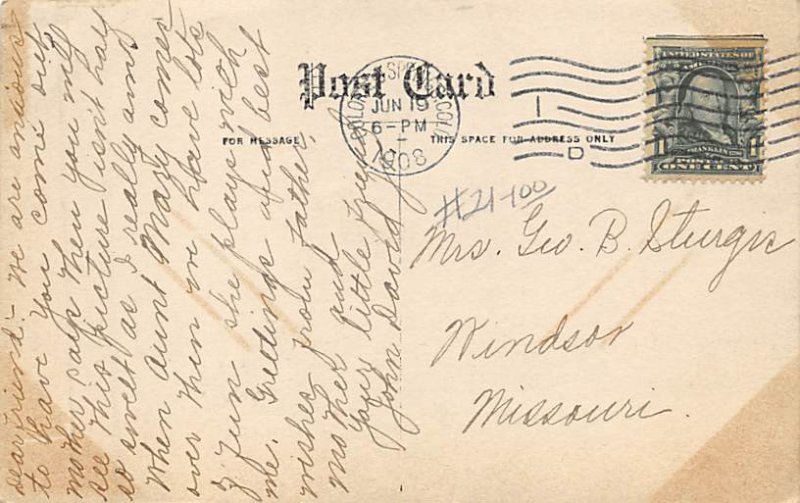 Post Card
FOR MESSAGE
THIS SPACE FOR ADDRESS ONLY
COLO. SPRINGS COLO.
JUN 19
6-PM
1908
1
D
UNITED STATES OF AMERICA
FRANKLIN
1 1
ONE CENT
#21-100
Mrs. Geo. B. Sturgis
Windsor
Missouri.
Dear Friend:- We are anxious
to have you come out
mother says then you my
see this picture isn't half
as sweet as I really am,
When Aunt Mary comes
over then we have lots
of fun she plays with
me. Greetings and best
wishes from father,
mother and
your little friend
John David